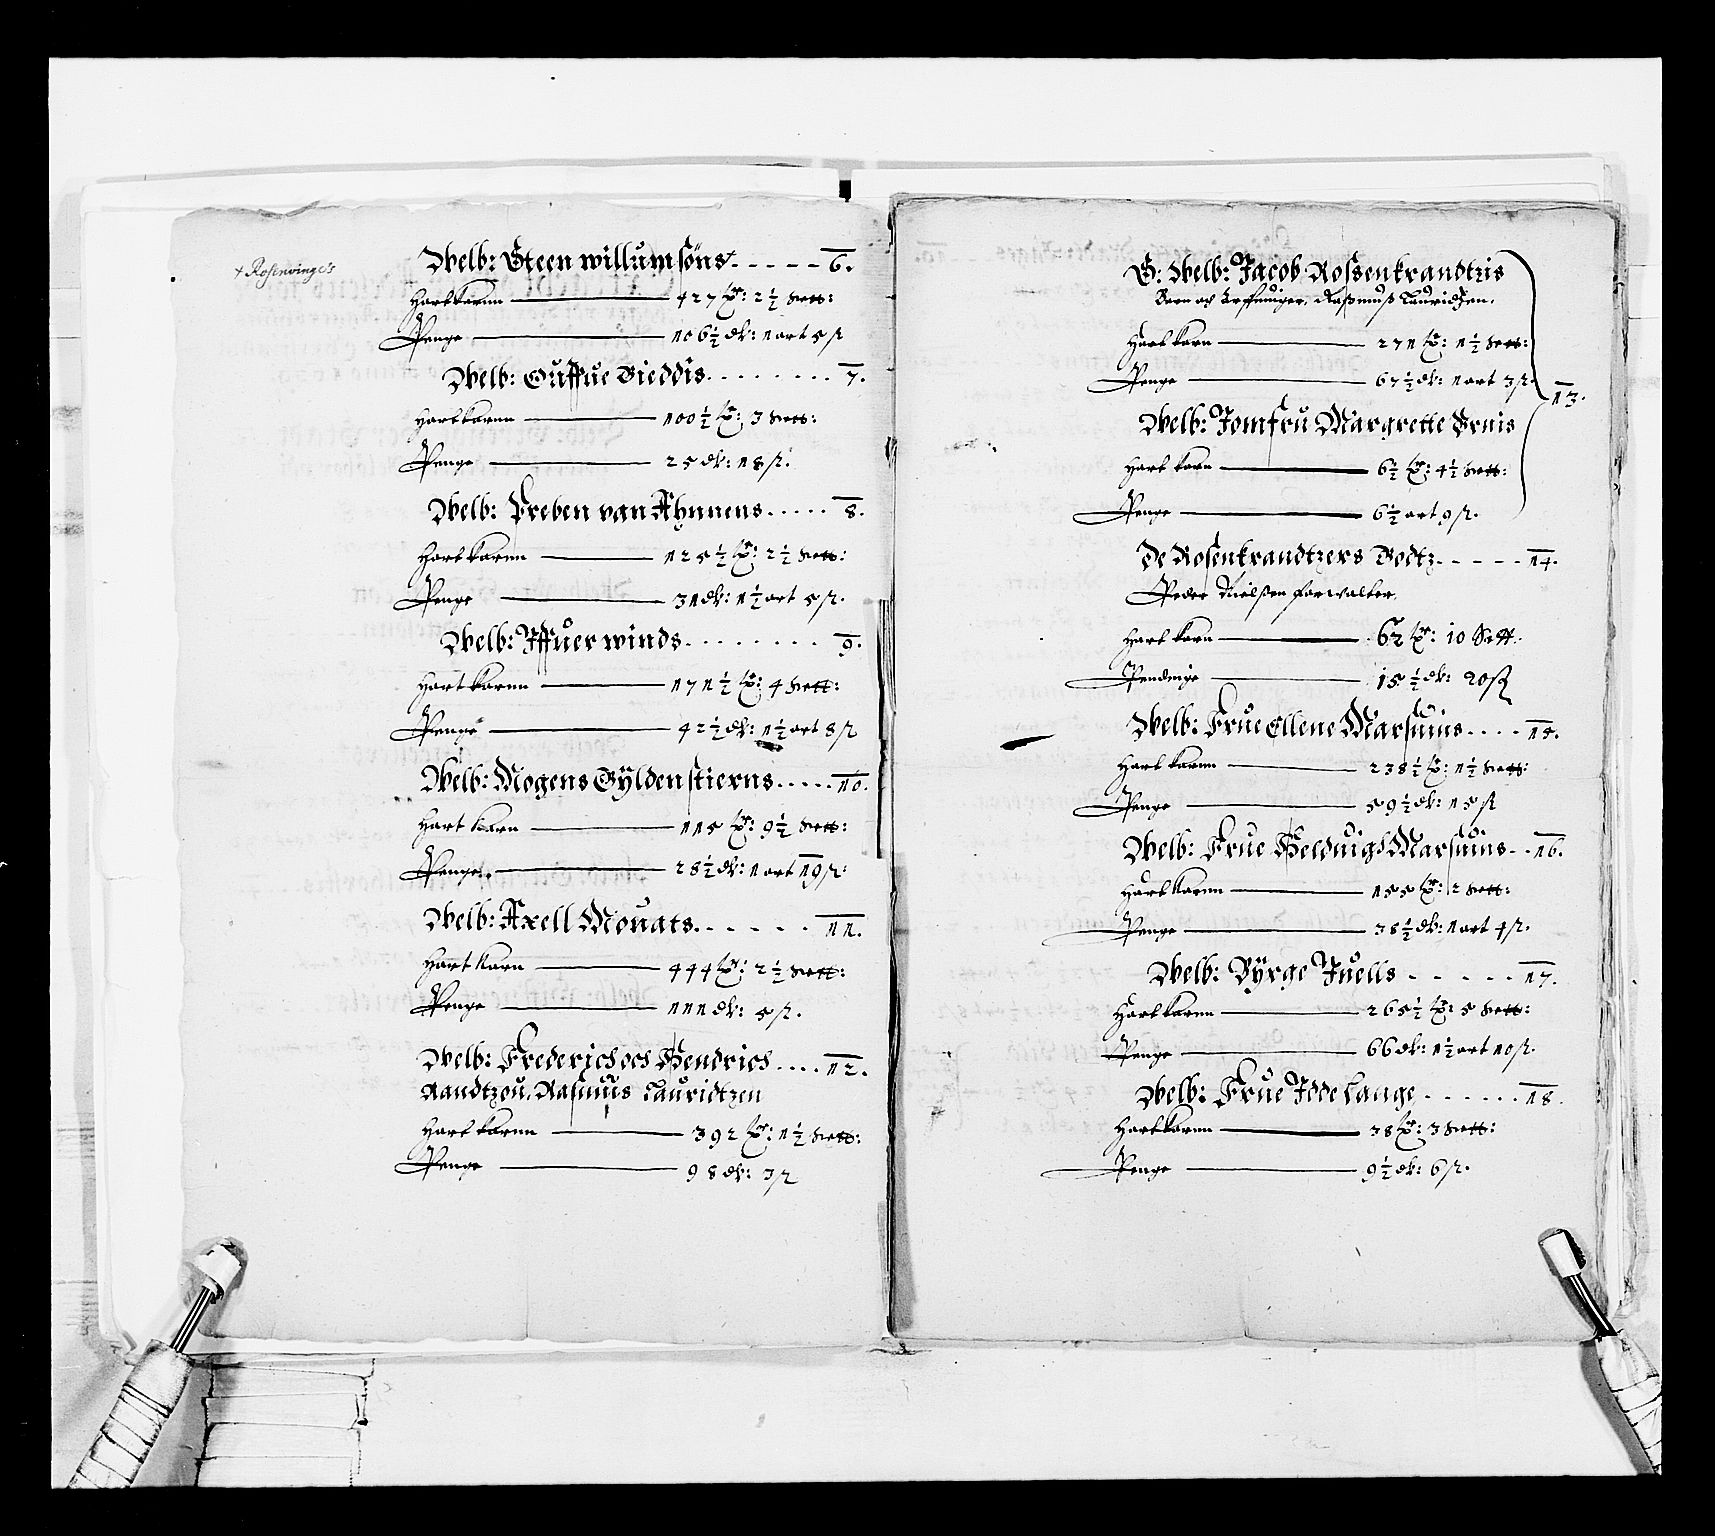 + Rosenvinge's
Welb: Steen willumsöns+ - - - - - 6.
Hartkornn — 427 tr: 2½ Sett:
Penge — 106½ dlr: 1 ort 5 s
Welb: Ouffue Gieddis . . . . . . . . 7.
Hartkornn — 100½ tr: 3 Sett:
Penge — 25 dlr: 18 s.
Welb: Preben van Ahnnens . . . . . 8.
Hartkornn — 125½ tr: 2½ Sett:
Penge — 31 dlr: 1½ ort 5 s.
Welb: Iffuer winds . . . . . . . . 9.
Hartkornn — 171½ tr: 4 Sett:
Penge — 42½ dlr: 1½ ort 8 s
Welb: Mogens Gyldenstierns . . . . . 10.
Hart korn — 115 tr: 9½ Sett:
Penge — 28½ dlr: 1 ort 19 s.
Welb: Axell Mouats . . . . . . 11.
Hart korn — 444 tr: 2½ Sett:
Penge — 111 dlr: 5 s.
Welb: Frederich och Hendrich . . . . 12.
Randtzou, Rasmus Lauridtzen
Hart kornn — 392 tr: 1½ Sett:
Penge — 98 dlr: 3 s
S: Welb: Jacob Rossenkrandtzis
Børn och Arffuinger, Rasmus Lauridzen.
Hart korn — 271 tr: 1½ Sett:
Penge — 67½ dlr: 1 ort 3 s.
13.
Welb: Jomfru Margrette Krnis
Hart korn — 6½ tr: 4½ Sett:
Penge — 6½ ort 9 s.
De Rosenkrandtzers Godtz - - - - - 14.
Peder Nielsen forwalter.
Hart korn — 62 tr: 10 Sett.
Pendinge — 15½ dlr: 20 s
Welb: Frue Ellene Marsuins . . . . 15.
Hart korn — 238½ tr: 1½ Sett:
Penge — 59½ dlr: 15 s
Welb: Frue Helduigs Marsuins - - 16.
Hartkornn — 155 tr: 2 Sett:
Penge — 38½ dlr: 1 ort 4 s.
Welb: Byrge Juells - - - - - 17.
Hartkornn — 265½ tr: 5 Sett:
Penge — 66 dlr: 1½ ort 10 s.
Welb: Frue Idde Lange - - - - - - 18.
Hartkornn — 38 tr: 3 Sett:
Penge — 9½ dlr: 6 s.